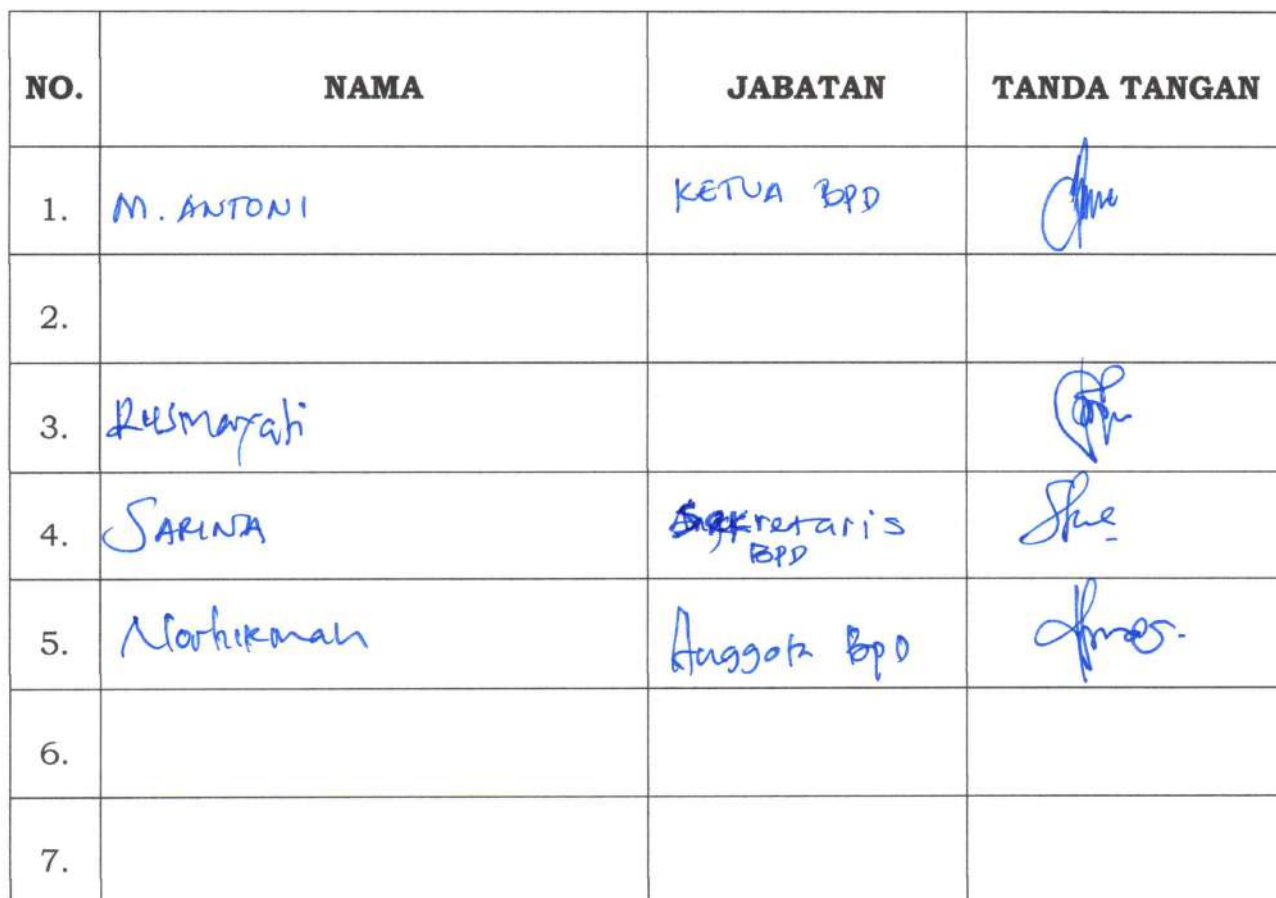 NO. NAMA JABATAN TANDA TANGAN
1. M. ANTONI KETUA BPD
2.
3. Rusmayati
4. SARINA Sekretaris
BPD
5. Norhikmah Anggota BpD
6.
7.